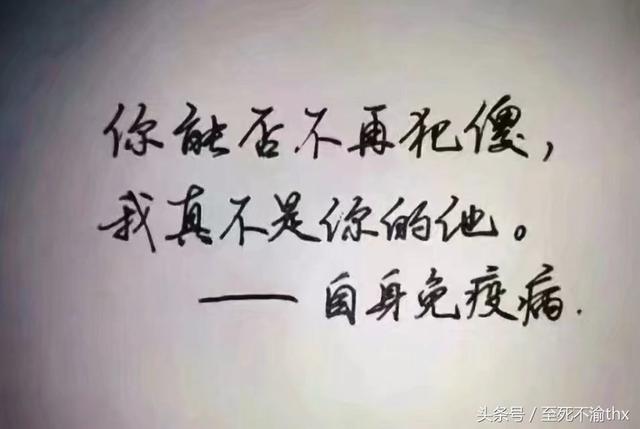 你能否不再犯傻，
我真不是你的他。
——自身免疫病.
头条号／至死不渝thx